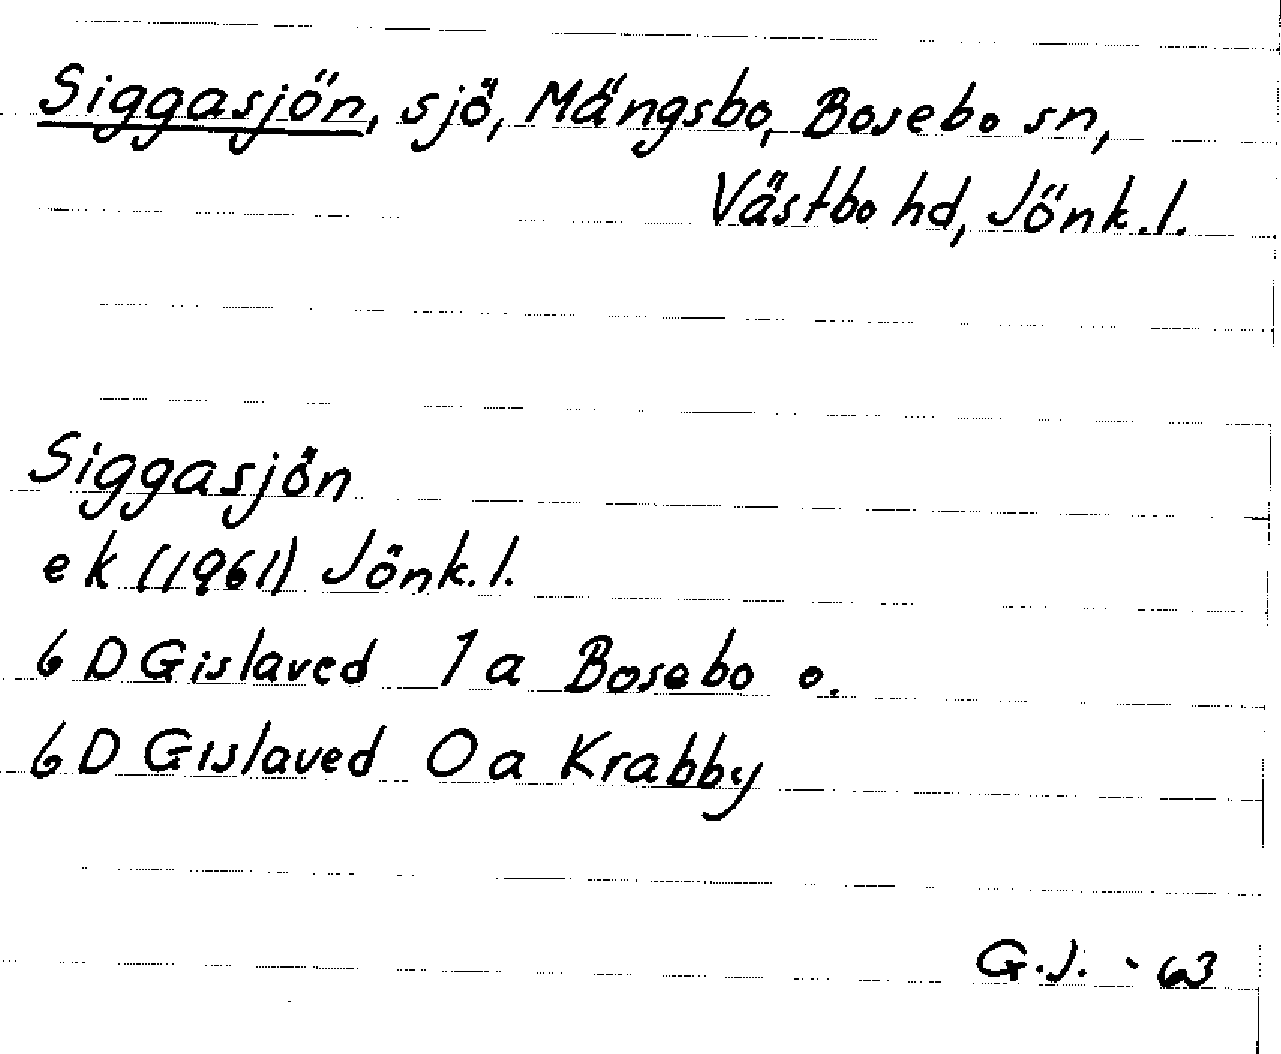 Siggasjön, sjö, Mängsbo, Bosebo sn,
Västbo hd, Jönk.l.
Siggasjön
ek (1961) Jönk.l.
6 D Gislaved 1 a Bosebo o.
6 D Gislaved 0 a Krabby
G.J. - 63